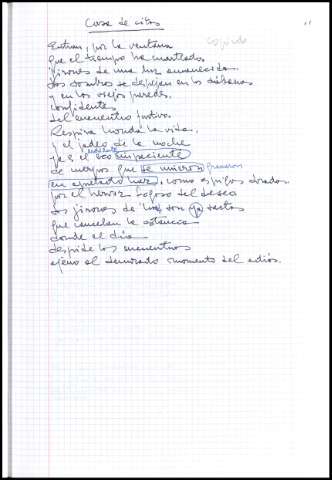 Casa de citas
copiado
Entran, por la ventana
que el tiempo ha
jirones de una luz amanecida.
Las sombras se despejan en las sábanas
y en los viejos paredes,
confidentes
del encuentro furtivo.
Respira honda la vida.
y el jadeo de la noche
ya es el eco impaciente
de cuerpos que se unieron
en apretado haz, como espigas doradas
por el hervor fogoso del deseo
Los jirones de luz son ya
que cancelan la estancia
donde el día
despide los encuentros
ajeno al demorado momento del adiós.